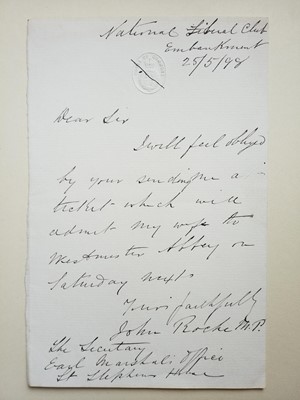 National Liberal Club
Embankment
25/5/98
Dear Sir
I will feel obliged
by your sending me a
ticket which will
admit my wife to
Westminster Abbey on
Saturday next
Yours faithfully
John Roche M.P.
The Secretary
Earl Marshal's Office
St Stephens House